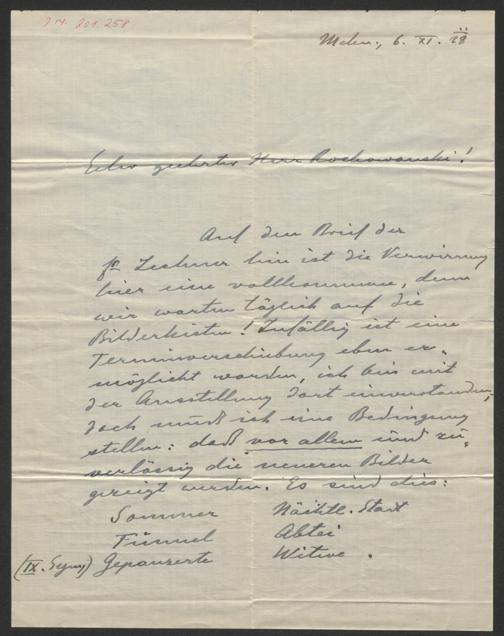 J.N. 201.258
6. XI. 28
Sehr geehrter Herr Rochowanski!
Auf den Brief der
fr Lechner hin ist die Verwirrung
hier eine vollkommene, denn
wir warten täglich auf die
Bilderkisten! Zufällig ist eine
Terminverschiebung eben er-
möglicht worden, ich bin mit
der Ausstellung dort einverstanden,
doch muß ich eine Bedingung
stellen: daß vor allem und zu-
verlässig die neueren Bilder
gezeigt werden. Es sind dies:
Sommer Nächtl. Stadt
Tunnel Abtei
(IX. Symf) Gepanzerte Witwe.